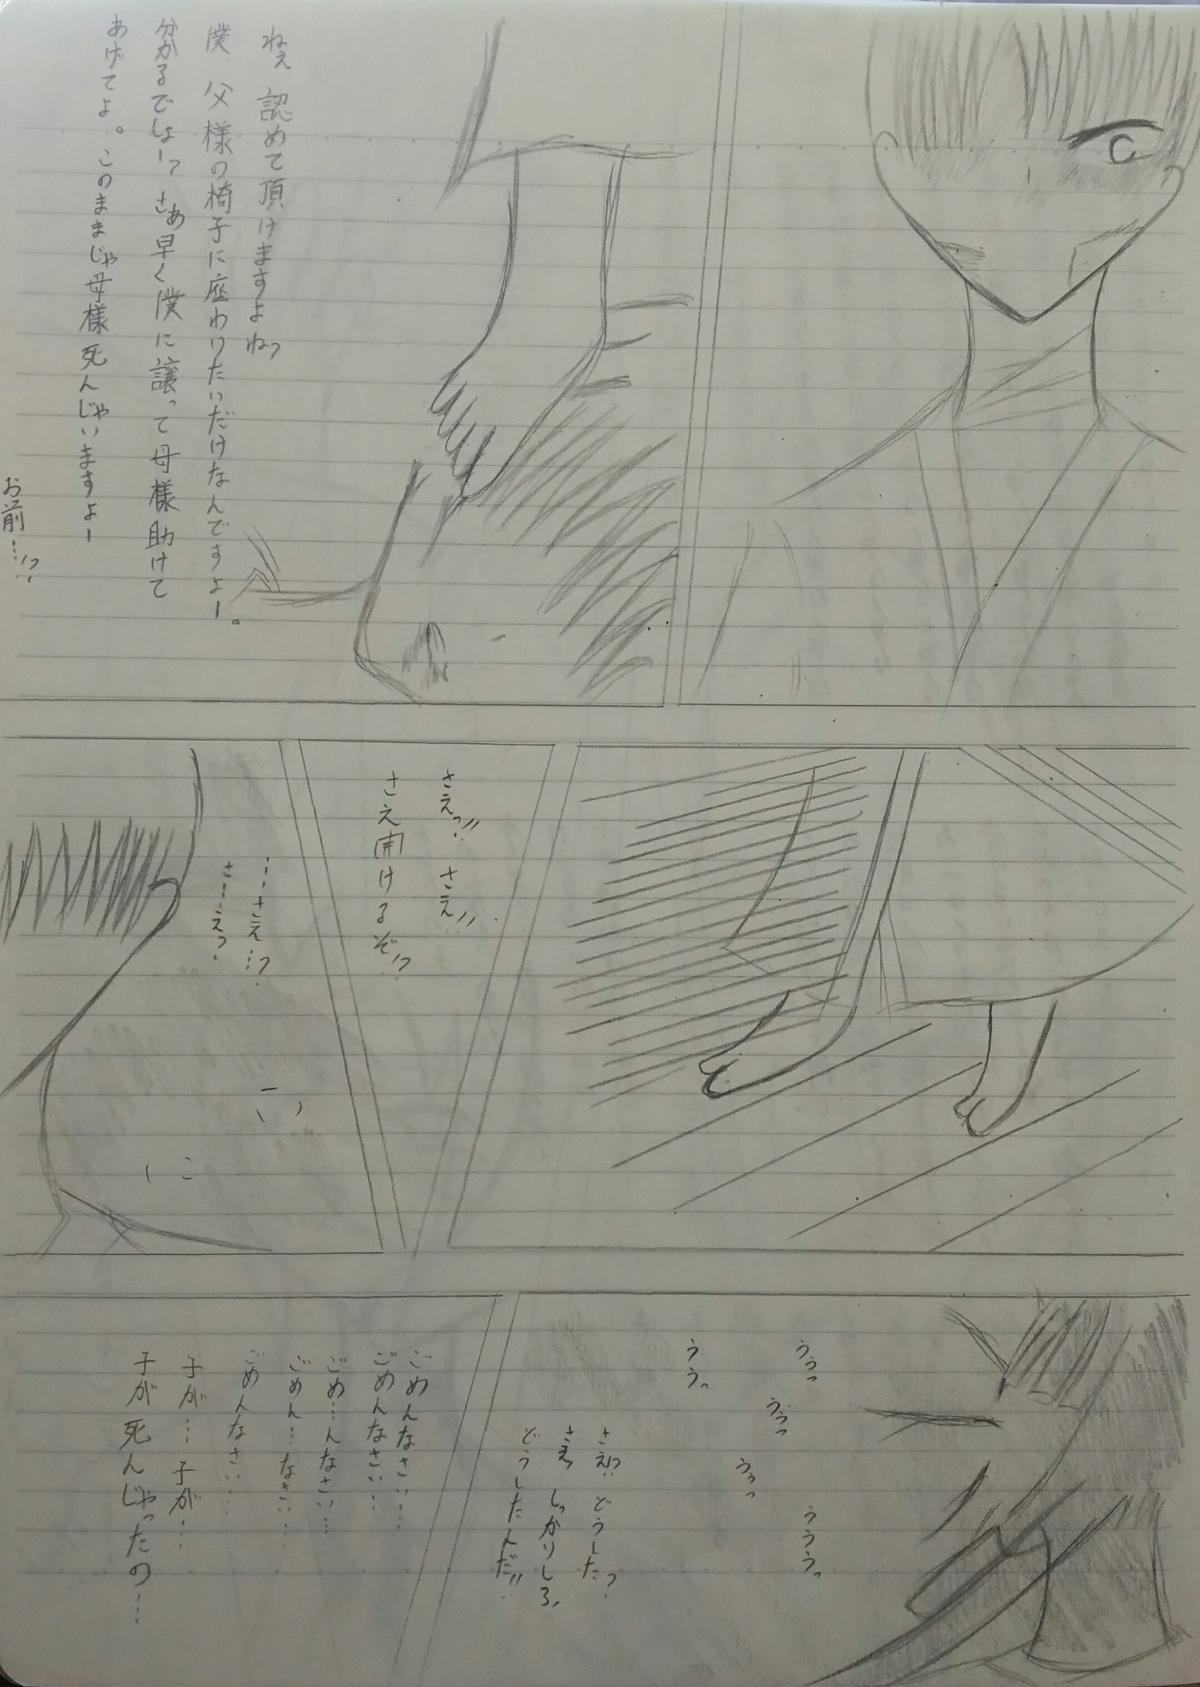 ねぇ 認めて頂けますよねっ
僕、父様の椅子に座わりたいだけなんですよー。
分かるでしょー? さあ早く僕に譲って母様助けて
あげてよ。このままじゃ母様死んじゃいますよー
お前…!?
さえっ!! さえ!!
さえ開けるぞ!?
…さえ…?
さーえっ
ううっ
ううっ
ううっ
ううっ
うううっ
さえ!? どうした?
さえっ しっかりしろ
どうしたんだ!!
ごめんなさい…
ごめんなさい…
ごめ…んなさい…
ごめん…なさい…
ごめんなさい…
子が… 子が…
子が死んじゃったの…